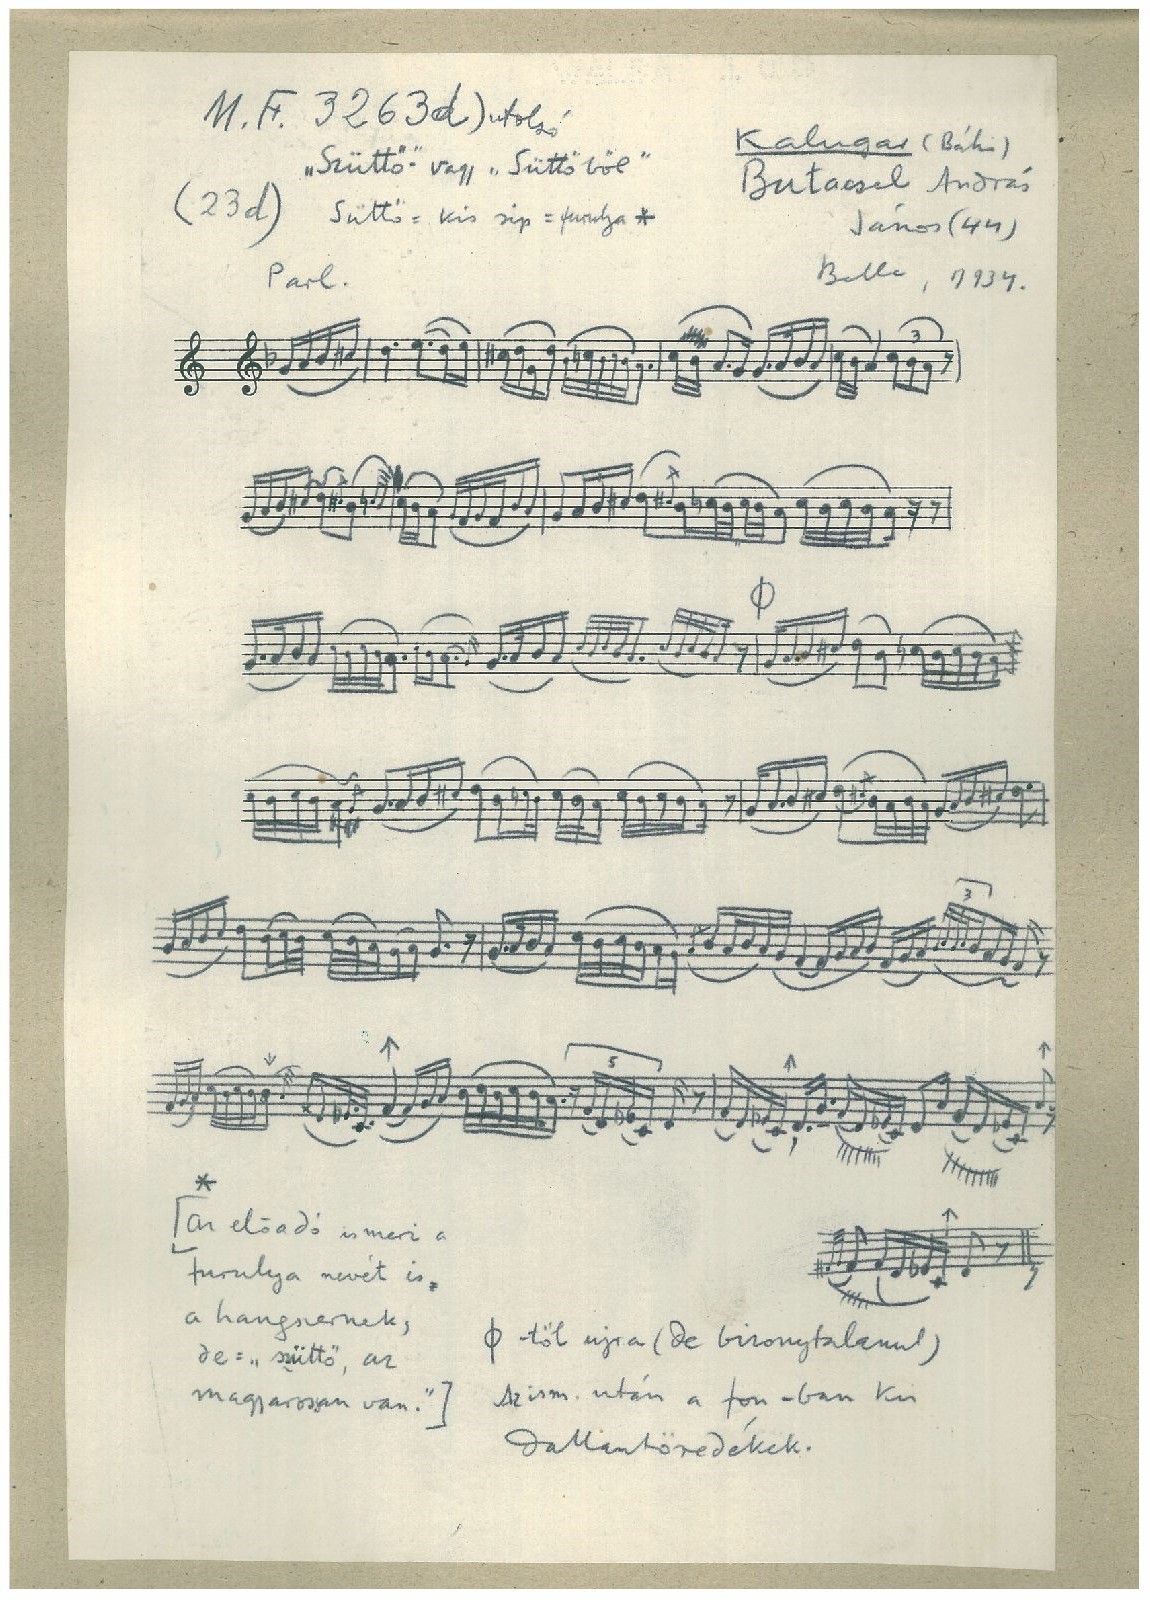 M.F. 3263d) utolsó
„Szüttő" vagy „Süttőből"
(23d) Süttő = kis síp = furulya *
Kalugar (Bákó)
Butacsel András
János (44)
Bella, 1934.
Parl.
3
ϕ
3
5
*
[az előadó ismeri a
furulya nevét is
a hangszernek,
de = „szüttő, az
magyarossan van."]
ϕ -től újra (de bizonytalanul)
Az ism. után a fon-ban kis
dallamtöredékek.